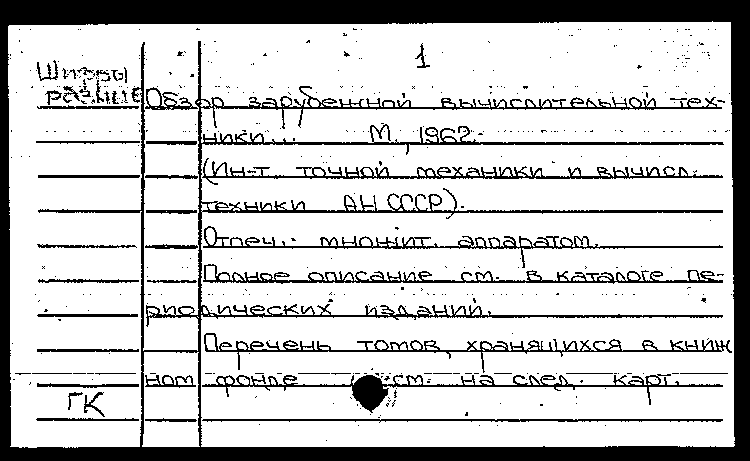 1
Шифры
разные
Обзор зарубежной вычислительной тех-
ники... М., 1962-
(Ин-т точной механики и вычисл.
техники АН СССР).
Отпеч. множит. аппаратом.
Полное описание см. в каталоге пе-
риодических изданий.
Перечень томов, хранящихся в книж
ном фонде см. на след. карт.
ГК